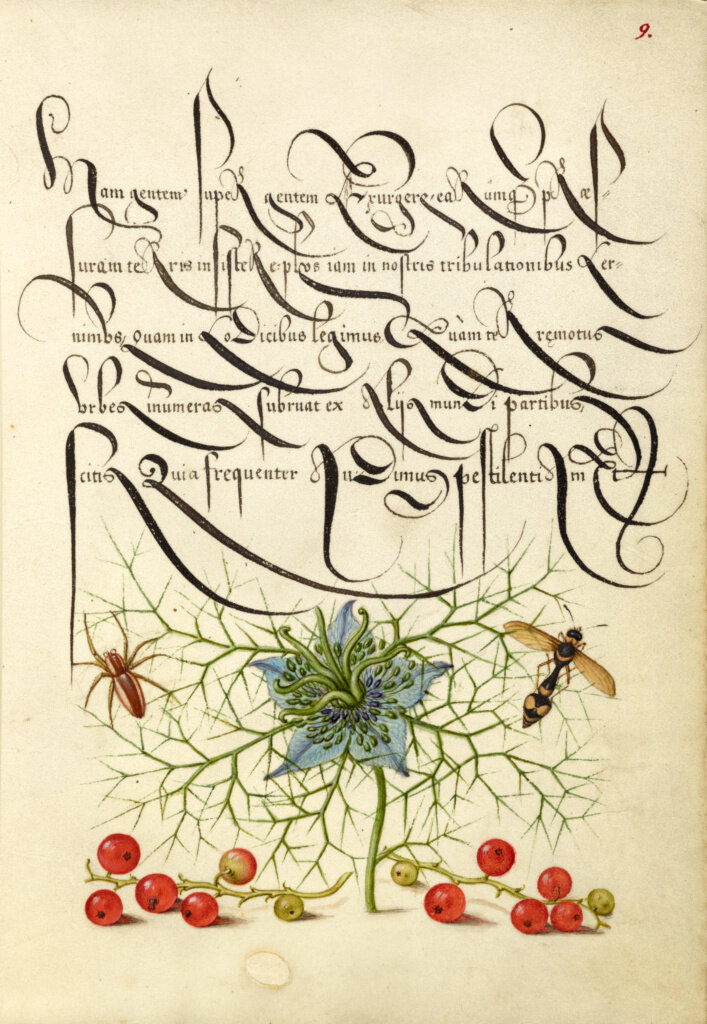 9.
Nam gentem super gentem Exurgere, earumq̃ pręs-
suram terris insistere: plus iam in nostris tribulationibus Cer-
nimus, Quam in Codicibus legimus. Quàm terr ręmotus
Vrbes inumeras subruat ex alijs mundi partibus,
scitis Quia frequenter audiuimus pestilentiam Et